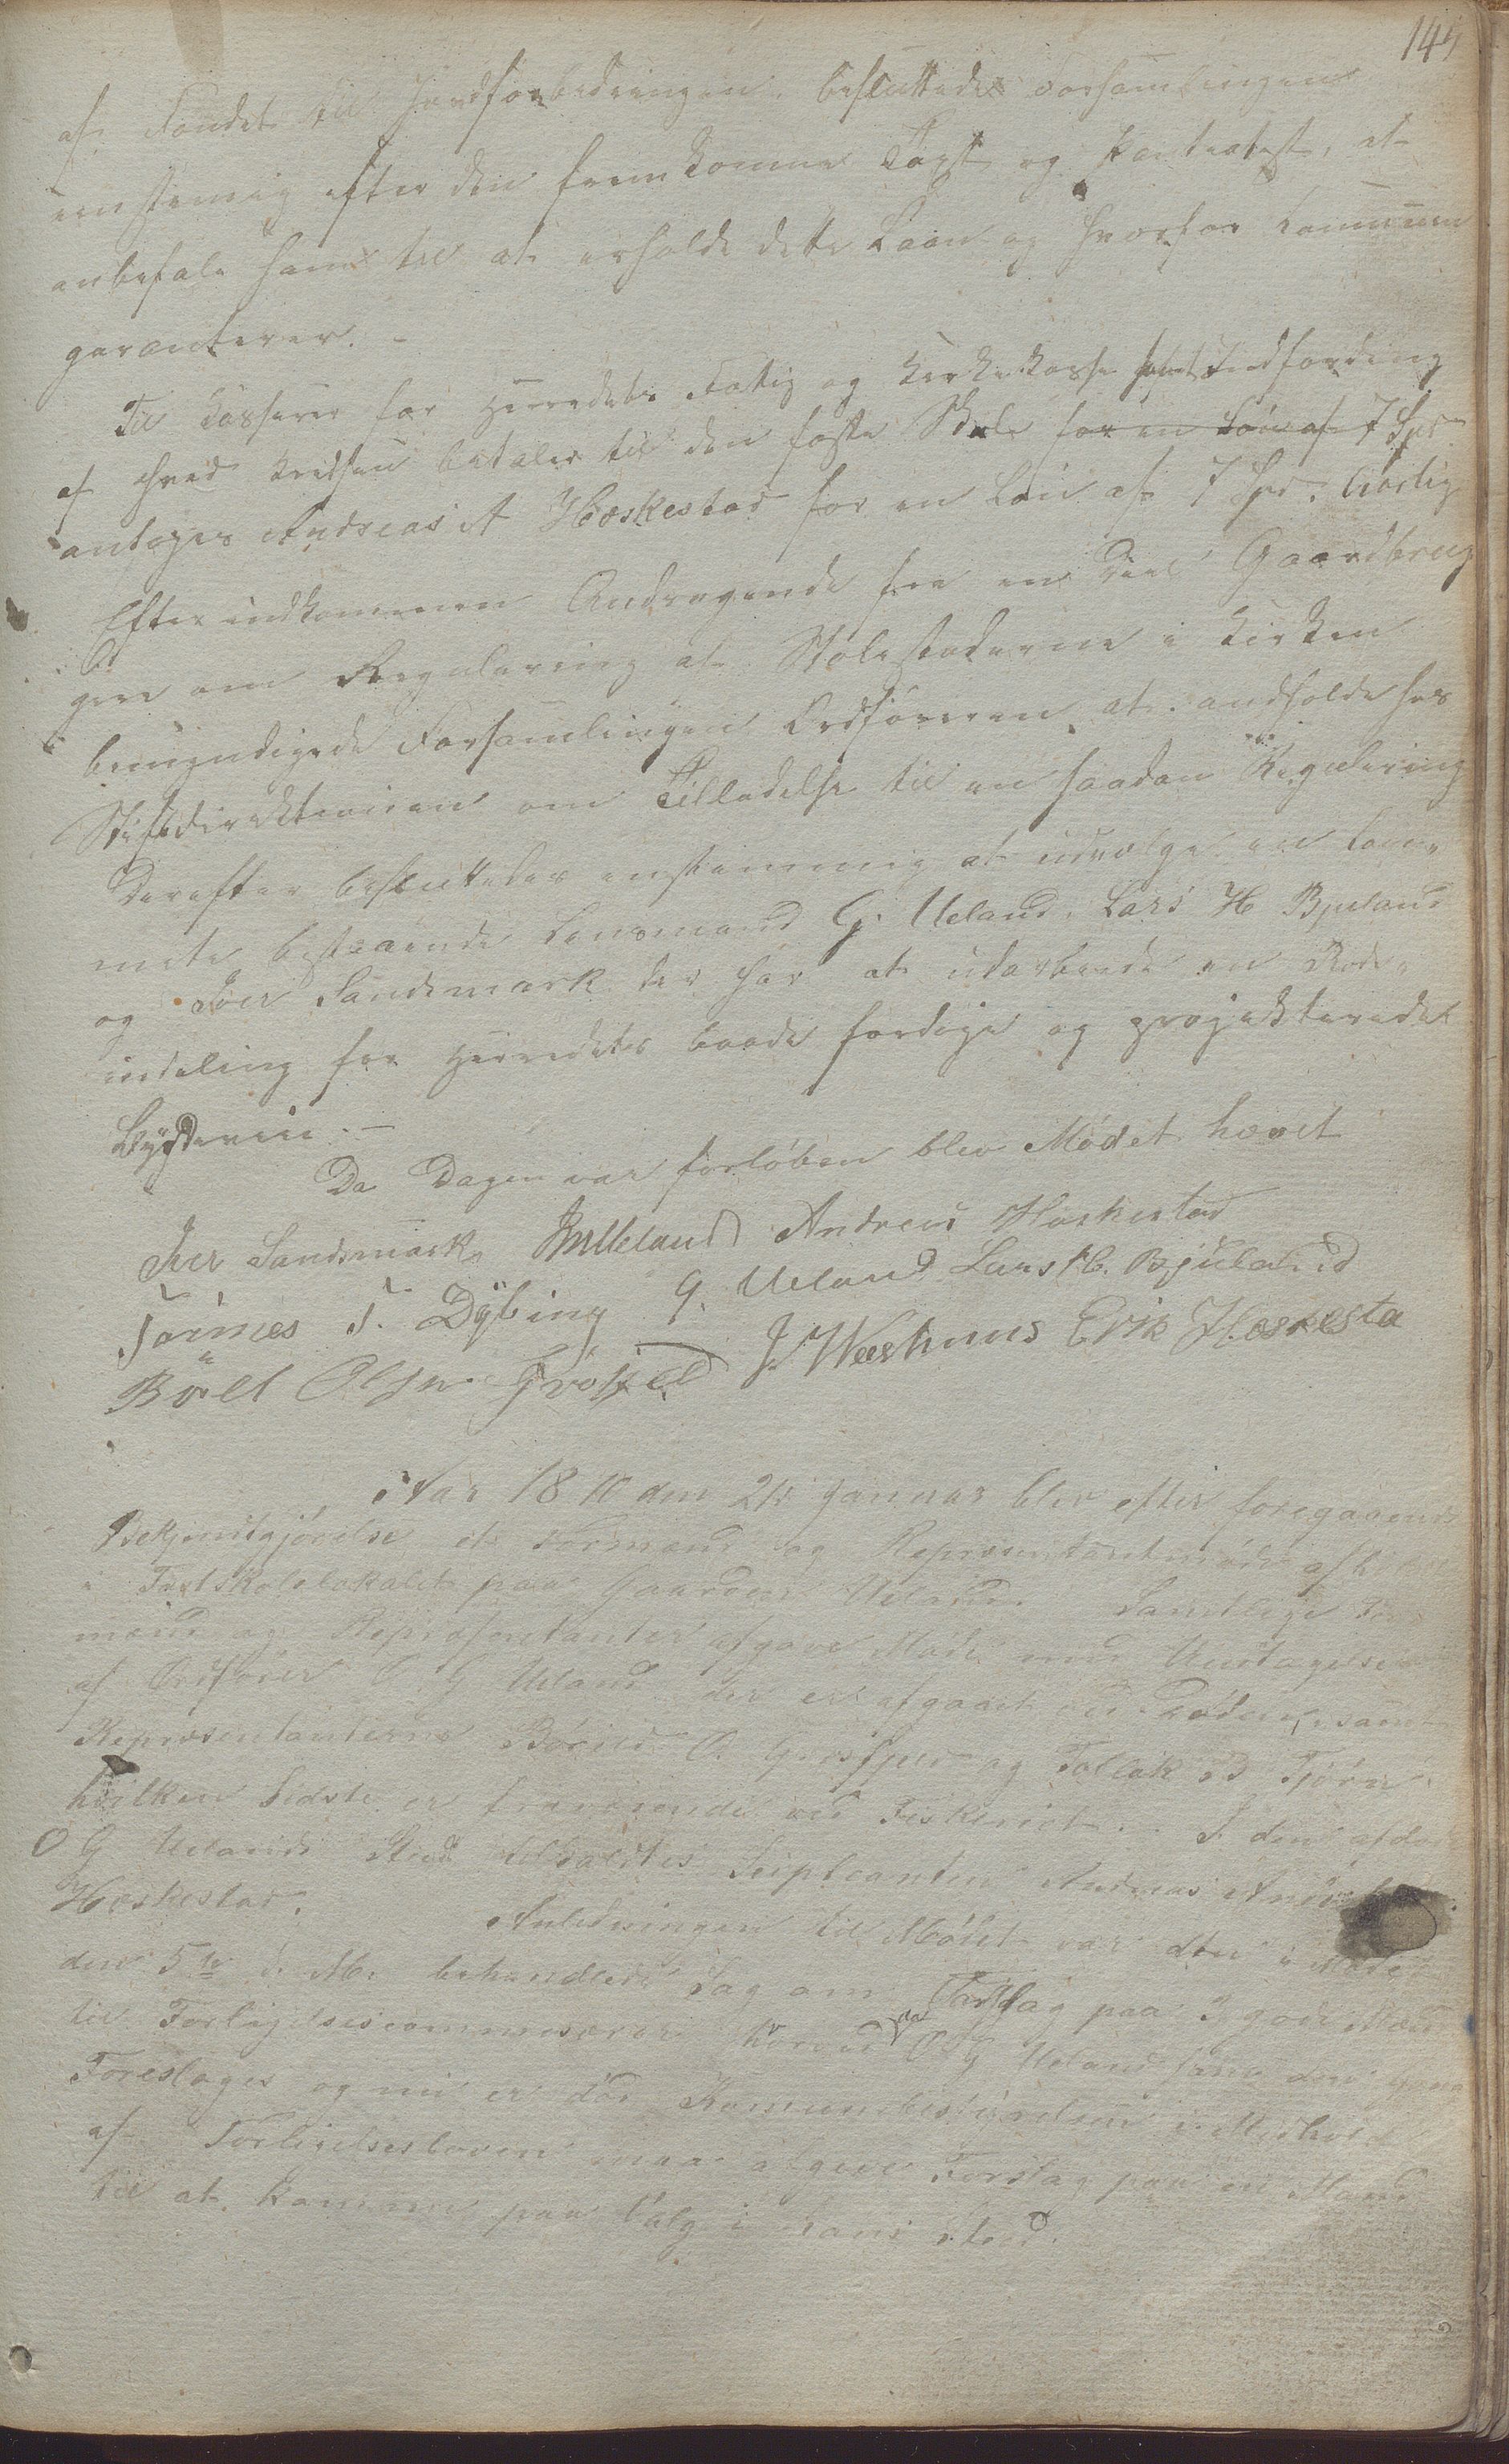 145
af Fondet til Jordforbedringen. besluttede Forsamlingen
eenstemig efter den fremkomne Taxt og Panteatest, at
anbefale ham til at erholde dette Laan og hvorfor Communen
garanterer. -
Til Kasserer for Herredets Fattig og Kirkekasse samt Indfordring
af hvad Kredsen betaler til den faste Skole for en Løn af 7 Spd
antoges Andreas A Hæskestad for en Løn af 7 Spd. Aarlig
Efter indkommen Andragende fra en Deel Gaardbrug
gere om Regulering at Stolestaderne i Kirken
bemyndigede Forsamlingen Ordføreren at andholde hos
Stiftdirektionen om Tilladelse til en saadan Regulering
Derefter besluttedes enstemmig at udvælge en Com-
mete bestaaende Lensmand G. Ueland, Lars H Bjuland
og Iver Sandsmark der har at udarbeide en Rode-
indeling for Herredets baade færdige og projekterede
Bygdeveie. -
Da Dagen var forløben blev Mødet hævet
Iver Sandsmark JMUeland Andreas Hæskestad
Tønnes T. Dybing G. Ueland Lars H. Bjuland
Børilt Olsen Grøsfjeld J Weshuus Erik Hæskesta
Aar 1870 den 21de Januar blev efter foregaaende
Bekjentgjørelse et Formand og Repræsentantmøde afholdt
i Fastskolelokalet paa Gaarden Ueland. Samtlige For
mænd og Repræsentanter afgave Møde med Undtagelse
af Ordfører O. G Ueland der er afgaaet ved Døden, samt
Repræsentanterne Børild O. Grøsfjed og Tollak B Tjørn
hvilken Sidste er fraværende ved Fiskeriet. - I den afdøde
O G Uelands Sted tilkaldtes Supleanten Andreas
Hæskestad.
Anledningen til Mødet var den i Møde
den 5te d. M. behandlede Sag om Forslag paa 3 gode Mænd
til Forligelsescommissærer hvorved da O G Ueland som den ene
Foresloges og nu er død Kommunbestyrelsen i Medhold
af Forligelsesloven maa afgive Forslag paa en Mand
til at komme paa Valg i hans sted.